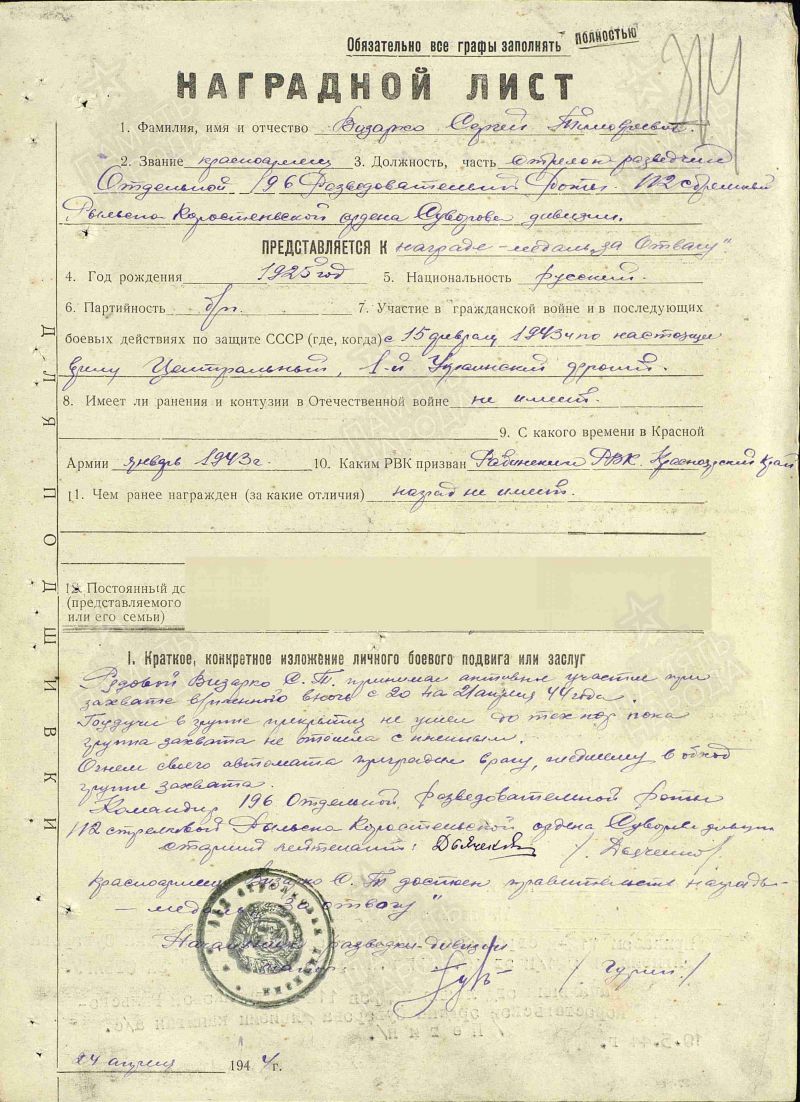 Обязательно все графы заполнять полностью
НАГРАДНОЙ ЛИСТ
1. Фамилия, имя и отчество Визарко Сергей Тимофеевич.
2. Звание красноармеец 3. Должность, часть стрелок-разведчик
Отдельной 196 Разведовательной Роты. 112 стрелковой
Рыльско-Коростеньской ордена Суворова дивизии.
ПРЕДСТАВЛЯЕТСЯ К награде - медаль „за Отвагу"
4. Год рождения 1925 год 5. Национальность русский.
6. Партийность б/п. 7. Участие в гражданской войне и в последующих
боевых действиях по защите СССР (где, когда) с 15 февраля 1943 г по настоящее
время Центральный, 1-й Украинский фронт.
8. Имеет ли ранения и контузии в Отечественной войне не имеет.
9. С какого времени в Красной
Армии январь 1943 г. 10. Каким РВК призван РВК. Красноярский Край
11. Чем ранее награжден (за какие отличия) наград не имеет.
12. Постоянный до
(представляемого
или его семьи)
I. Краткое, конкретное изложение личного боевого подвига или заслуг
Рядовой Визарко С. Т. принимал активное участие при
захвате в ночь с 20 на 21 апреля 44 года.
Будучи в группе прикрытия не ушел до тех пор пока
группа захвата не отошла с пленным.
Огнем своего автомата преградил врагу, шедшему в обход
группе захвата.
Командир 196 Отдельной Разведовательной Роты
112 стрелковой Рыльско Коростеньской ордена Суворова дивизии
старший лейтенант: /Дьяченко/
Красноармеец Визарко С. Т достоин правительств награды
- медаль „За отвагу"
Начальник разведки дивизии
/Гурин/
24 апреля 1944 г.
ДЛЯ ПОДШИВКИ